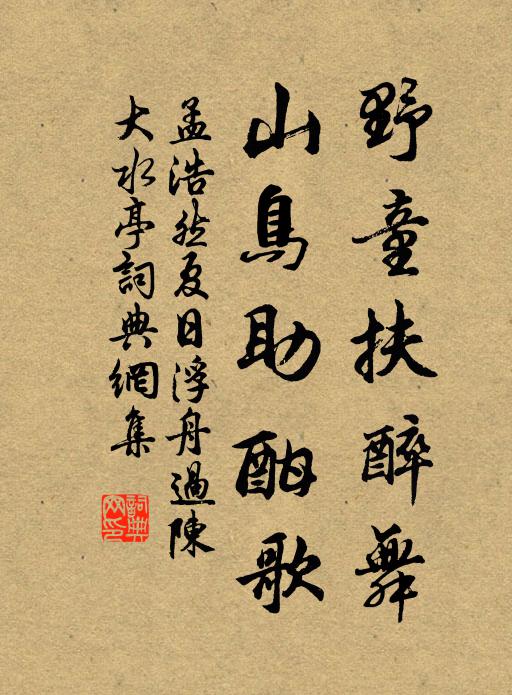 野童扶醉舞
山鳥助酣歌
孟浩然夏日浮舟過陳
大水亭詞典網集
詞典
网印